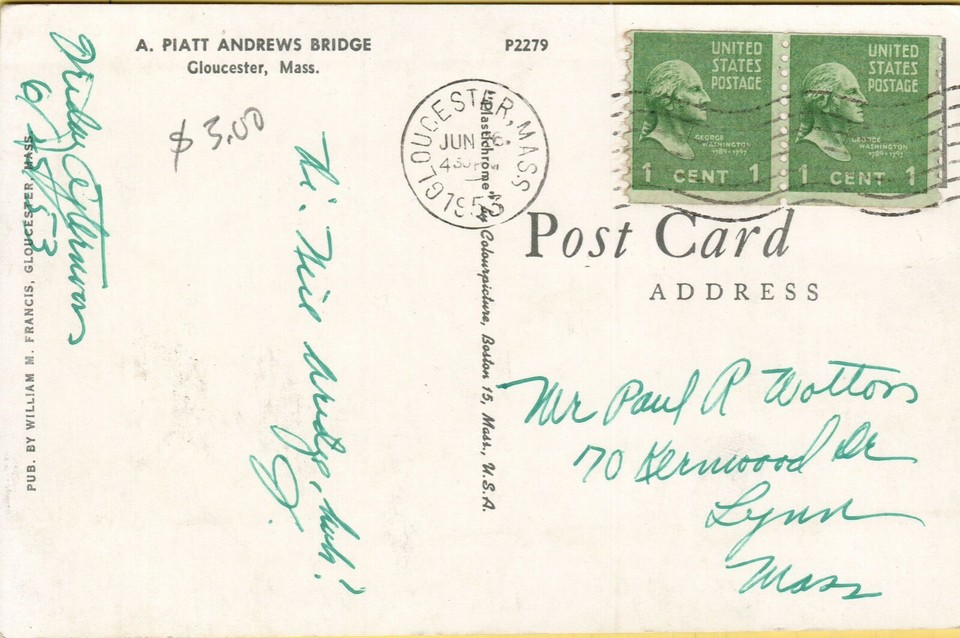 A. PIATT ANDREWS BRIDGE
Gloucester, Mass.
P2279
$3.00
Friday Afternoon
PUB. BY WILLIAM M. FRANCIS, GLOUCESTER, MASS.
Hi! Nice bridge, huh!
J.
GLOUCESTER, MASS.
JUN
1953
"Plastichrome" by Colourpicture, Boston 15, Mass., U.S.A.
UNITED
STATES
POSTAGE
GEORGE
WASHINGTON
1789-1797
1 CENT 1
UNITED
STATES
POSTAGE
GEORGE
WASHINGTON
1789-1797
1 CENT 1
Post Card
ADDRESS
Mr Paul R Wottons
70 Kernwood Dr
Lynn
Mass